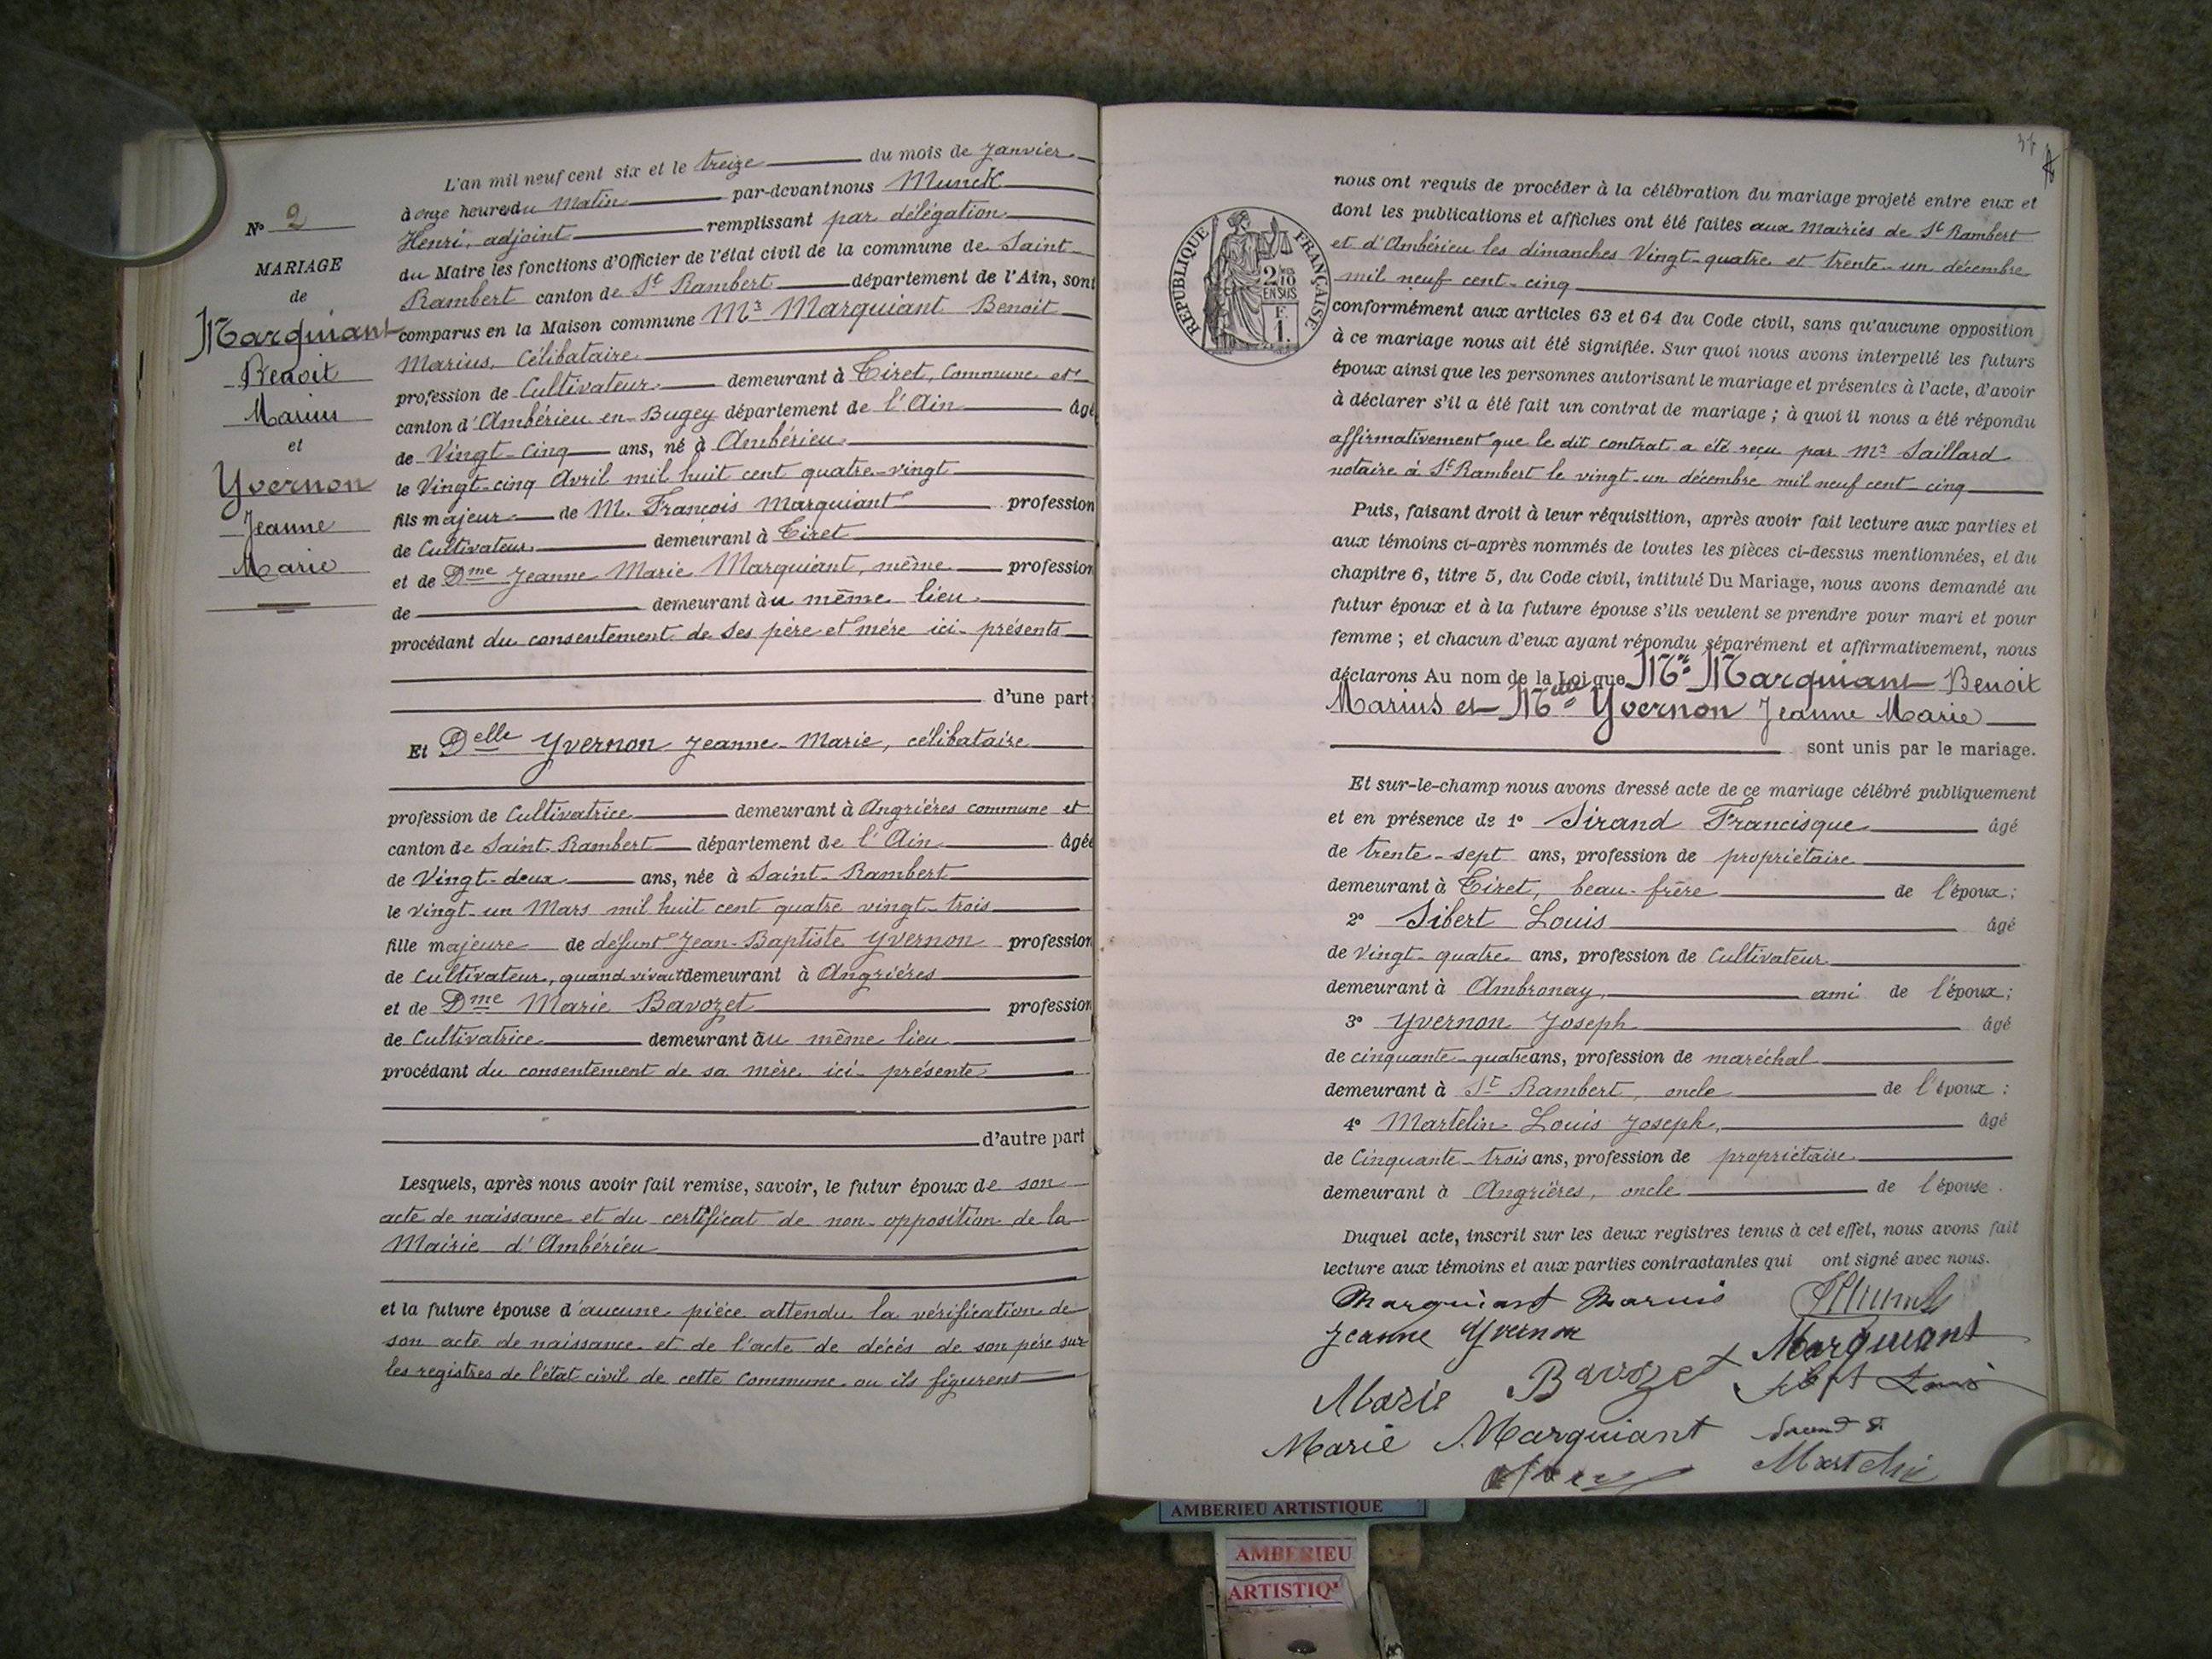 N° 2
MARIAGE
de
Marquiant
Benoit
Marius
et
Yvernon
Jeanne
Marie
L'an mil neuf cent six et le treize du mois de Janvier
à onze heures du Matin par-devant nous Munck
Henri, adjoint remplissant par délégation
du Maire les fonctions d'Officier de l'état civil de la commune de Saint-
Rambert canton de St Rambert département de l'Ain, sont
comparus en la Maison commune Mr Marquiant Benoit
Marius, Célibataire
profession de Cultivateur demeurant à Tiret, Commune et
canton d'Ambérieu en-Bugey département de l'Ain âgé
de Vingt-cinq ans, né à Ambérieu
le Vingt-cinq Avril mil huit cent quatre-vingt
fils majeur de M. François Marquiant profession
de Cultivateur demeurant à Tiret
et de Dme Jeanne Marie Marquiant, même profession
de demeurant àu même lieu
procédant du consentement de ses père et mère ici-présents
d'une part;
Et Delle Yvernon Jeanne-Marie, célibataire
profession de Cultivatrice demeurant à Angrières commune et
canton de Saint-Rambert département de l'Ain âgée
de Vingt-deux ans, née à Saint-Rambert
le vingt-un Mars mil huit cent quatre vingt-trois
fille majeure de défunt Jean-Baptiste Yvernon profession
de Cultivateur, quand vivait demeurant à Angrières
et de Dme Marie Bavozet profession
de Cultivatrice demeurant àu même lieu
procédant du consentement de sa mère ici-présente
d'autre part
Lesquels, après nous avoir fait remise, savoir, le futur époux de son
acte de naissance et du certificat de non-opposition de la
Mairie d'Ambérieu
et la future épouse d'aucune pièce attendu la vérification de
son acte de naissance et de l'acte de décès de son père sur
les registres de l'état civil de cette Commune ou ils figurent
RÉPUBLIQUE FRANÇAISE
2/10
EN SUS
F.
1.
nous ont requis de procéder à la célébration du mariage projeté entre eux et
dont les publications et affiches ont été faites aux Mairies de St Rambert
et d'Ambérieu les dimanches Vingt-quatre et trente-un décembre
mil neuf cent-cinq
conformément aux articles 63 et 64 du Code civil, sans qu'aucune opposition
à ce mariage nous ait été signifiée. Sur quoi nous avons interpellé les futurs
époux ainsi que les personnes autorisant le mariage et présentes à l'acte, d'avoir
à déclarer s'il a été fait un contrat de mariage ; à quoi il nous a été répondu
affirmativement que le dit contrat a été reçu par Me Saillard
notaire à St Rambert le vingt-un décembre mil neuf cent-cinq
Puis, faisant droit à leur réquisition, après avoir fait lecture aux parties et
aux témoins ci-après nommés de toutes les pièces ci-dessus mentionnées, et du
chapitre 6, titre 5, du Code civil, intitulé Du Mariage, nous avons demandé au
futur époux et à la future épouse s'ils veulent se prendre pour mari et pour
femme ; et chacun d'eux ayant répondu séparément et affirmativement, nous
déclarons Au nom de la Loi que Mr Marquiant Benoit
Marius et Melle Yvernon Jeanne Marie
sont unis par le mariage.
Et sur-le-champ nous avons dressé acte de ce mariage célébré publiquement
et en présence de 1° Sirand Francisque âgé
de trente-sept ans, profession de propriétaire
demeurant à Tiret, beau-frère de l'époux;
2° Sibert Louis âgé
de vingt-quatre ans, profession de Cultivateur
demeurant à Ambronay, ami de l'époux;
3° Yvernon Joseph âgé
de cinquante-quatre ans, profession de maréchal
demeurant à St Rambert, oncle de l'époux :
4° Martelin Louis Joseph, âgé
de Cinquante-trois ans, profession de propriétaire
demeurant à Angrières, oncle de l'épouse.
Duquel acte, inscrit sur les deux registres tenus à cet effet, nous avons fait
lecture aux témoins et aux parties contractantes qui ont signé avec nous.
Marquiant Marius
Jeanne Yvernon
Marquiant
Marie Bavozet
Marie Marquiant
AMBERIEU ARTISTIQUE
AMBERIEU
ARTISTIQ